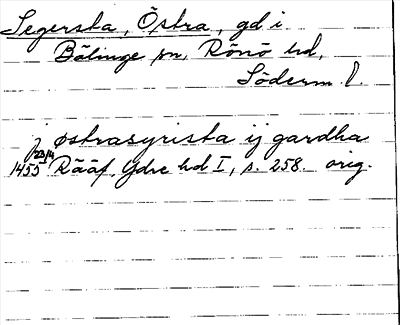 Segersta, Östra, gd i
Bälinge sn, Rönö hd,
Söderm. l.
j østrasyrista ij gardha
1455 23/4 Rääf, Ydre hd I, s. 258. orig.